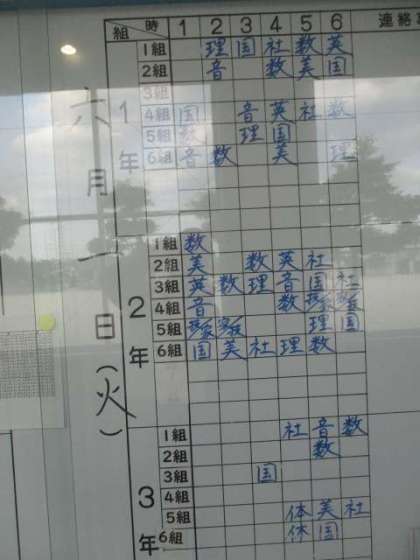 時 1 2 3 4 5 6 連絡
組
六月一日(火)
1年
1組 理 国 社 数 英
2組 音 数 美 国
3組
4組 国 音 英 社 数
5組 理 国
6組 音 数 美 理
2年
1組 数
2組 美 数 英 社
3組 英 数 理 音 国 社
4組 音 数
5組 理 国
6組 国 美 社 理 数
3年
1組 社 音 数
2組 数
3組 国
4組
5組 体 美 社
6組 体 国